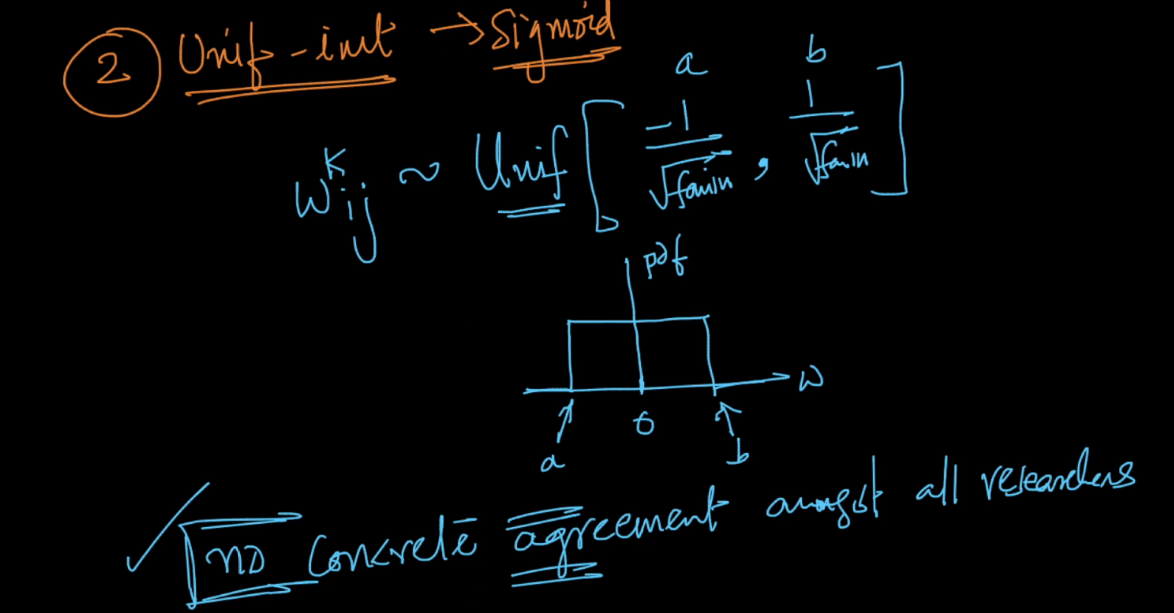 2 Unif-init → Sigmoid
a b
W^k_ij ~ Unif [ -1/√fanin , 1/√fanin ]
pdf
W
0
a b
no Concrete agreement amongst all researchers